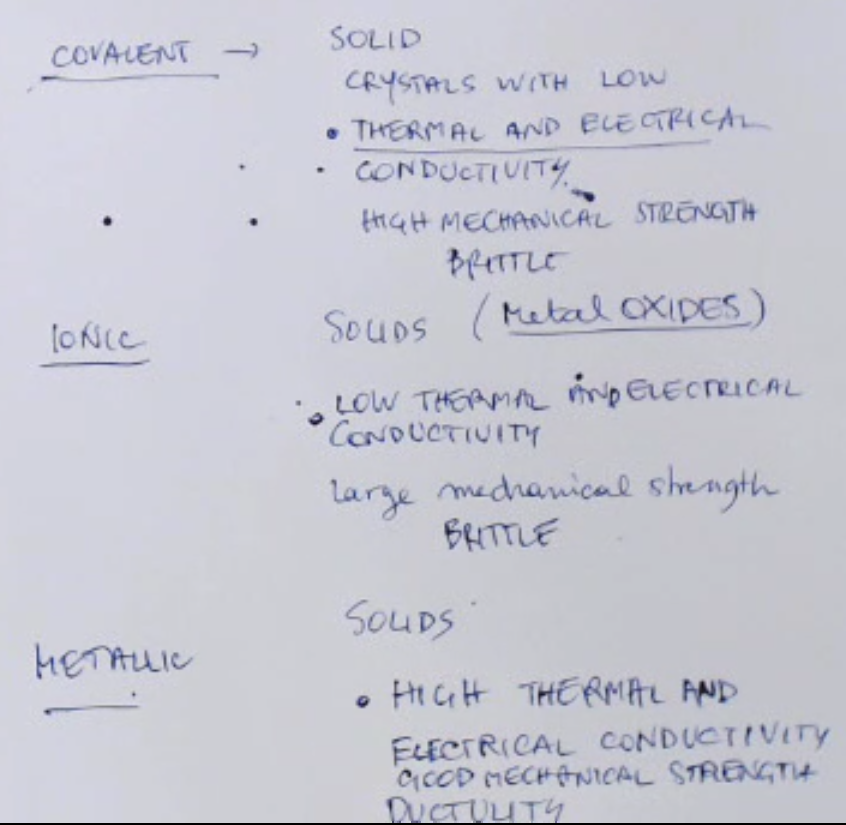 COVALENT → SOLID
CRYSTALS WITH LOW
• THERMAL AND ELECTRICAL
• CONDUCTIVITY.
HIGH MECHANICAL STRENGTH
BRITTLE
IONIC SOLIDS (Metal OXIDES)
• LOW THERMAL AND ELECTRICAL
CONDUCTIVITY
Large mechanical strength
BRITTLE
SOLIDS
METALLIC
• HIGH THERMAL AND
ELECTRICAL CONDUCTIVITY
GOOD MECHANICAL STRENGTH
DUCTULITY